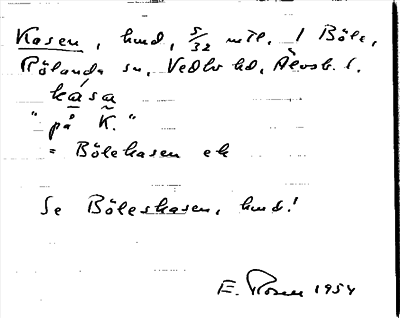 Kasen, hmd, 5/32 mtl. / Böle,
Rölanda sn, Vedbo hd, Älvsb. l.
kása
"på K."
= Bölekasen ek
Se Böleskasen, hmd!
E. Rosen 1954